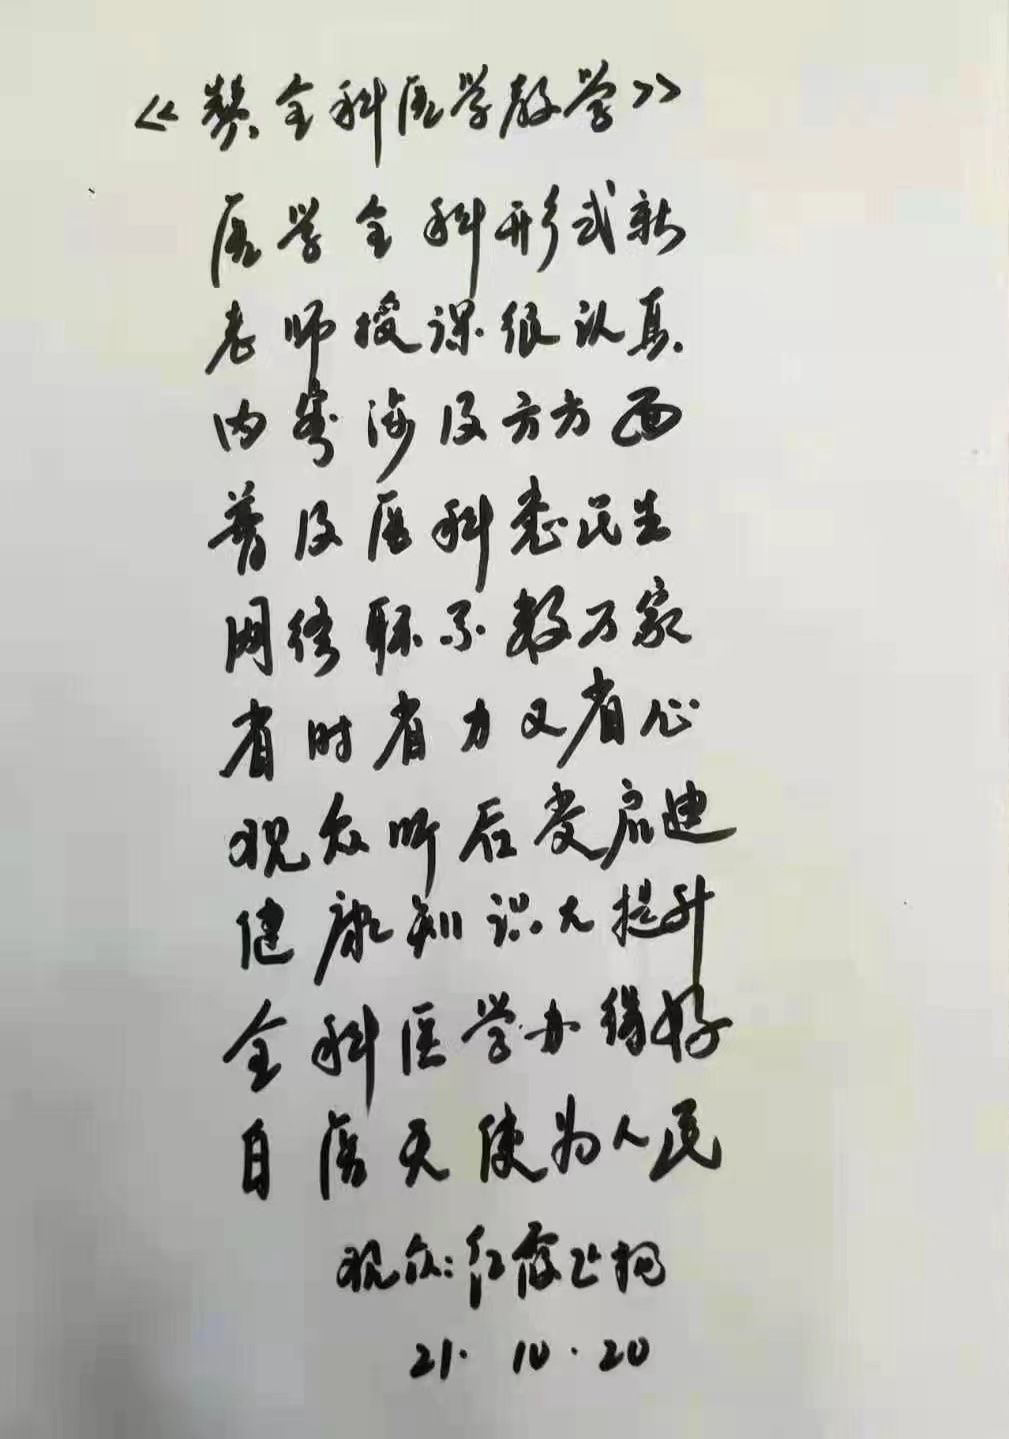 《赞全科医学教学》
医学全科形式新
老师授课很认真
内容涉及方方面
普及医科惠民生
网络联系数万家
省时省力又省心
观众听后受启迪
健康知识大提升
全科医学办得好
白衣天使为人民
观众:红霞
21.10.20